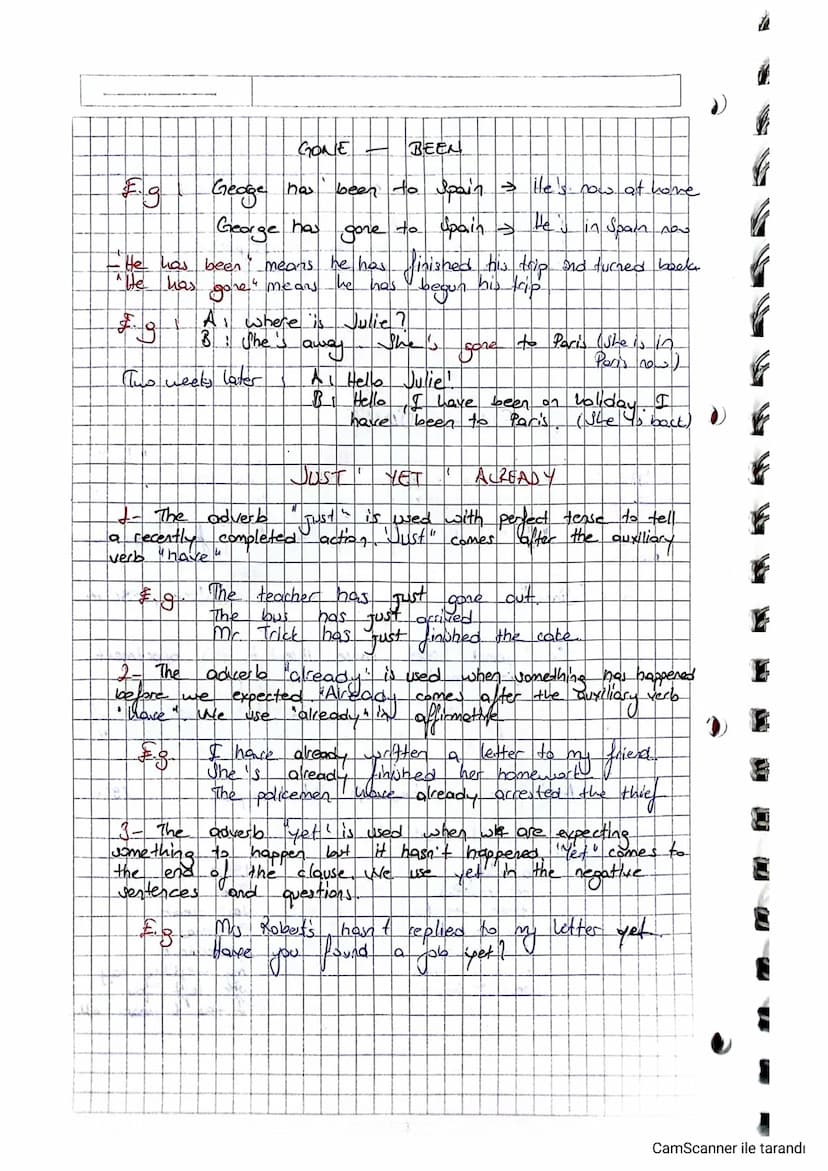 GONE — BEEN
E.g : Geoge has been to Spain → He's now at home
George has gone to Spain → He's in Spain now
- "He has been" means he has finished his trip and turned back.
"He has gone" means he has begun his trip
E.g : A: where is Julie?
B: She's away. She's gone to Paris (she is in
Paris now)
Two weeks later : A: Hello Julie!
B: Hello, I have been on holiday. I
have been to Paris. (She is back)
JUST ' YET ' ALREADY
1- The adverb "just" is used with perfect tense to tell
a recently completed action. "Just" comes after the auxiliary
verb "have"
E.g. The teacher has just gone out.
The bus has just arrived
Mr. Trick has just finished the cake.
2- The adverb "already" is used when something has happened
before we expected "Already comes after the auxiliary verb
"have". We use "already" in affirmative
E.g. I have already written a letter to my friend.
She's already finished her homework
The policemen have already arrested the thief
3- The adverb "yet" is used when we are expecting
something to happen but it hasn't happened. "Yet" comes to
the end of the clause. We use yet in the negative
sentences and questions.
E.g. Mrs Roberts hasn't replied to my letter yet.
Have you found a job yet?
CamScanner ile tarandı